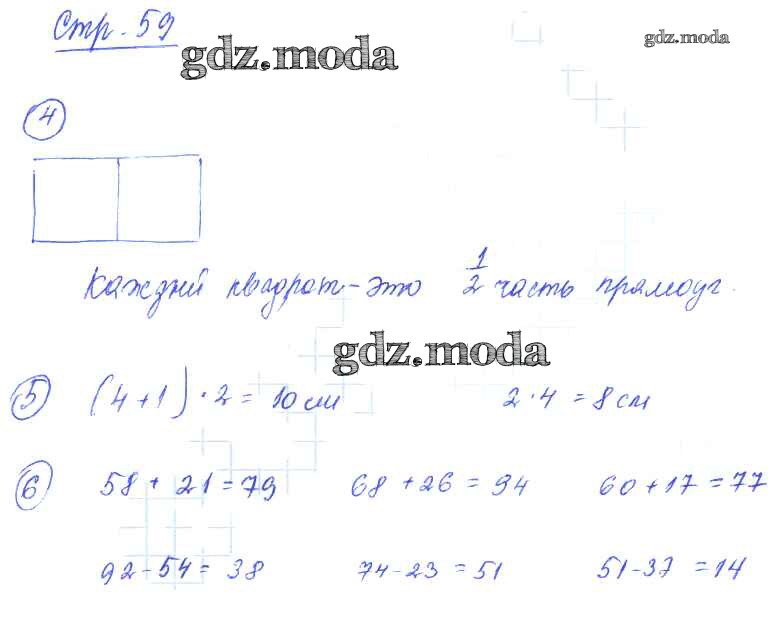 Стр. 59
gdz.moda
gdz.moda
4
Каждый квадрат - это 1/2 часть прямоуг.
gdz.moda
5 (4+1) · 2 = 10 см 2 · 4 = 8 см
6 58 + 21 = 79 68 + 26 = 94 60 + 17 = 77
92 - 54 = 38 74 - 23 = 51 51 - 37 = 14